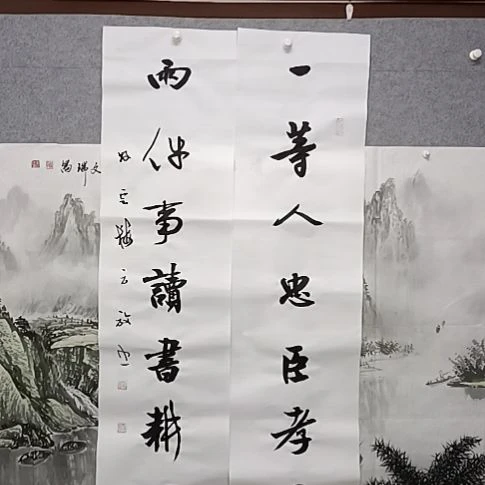 一等人忠臣孝
兩件事讀書耕